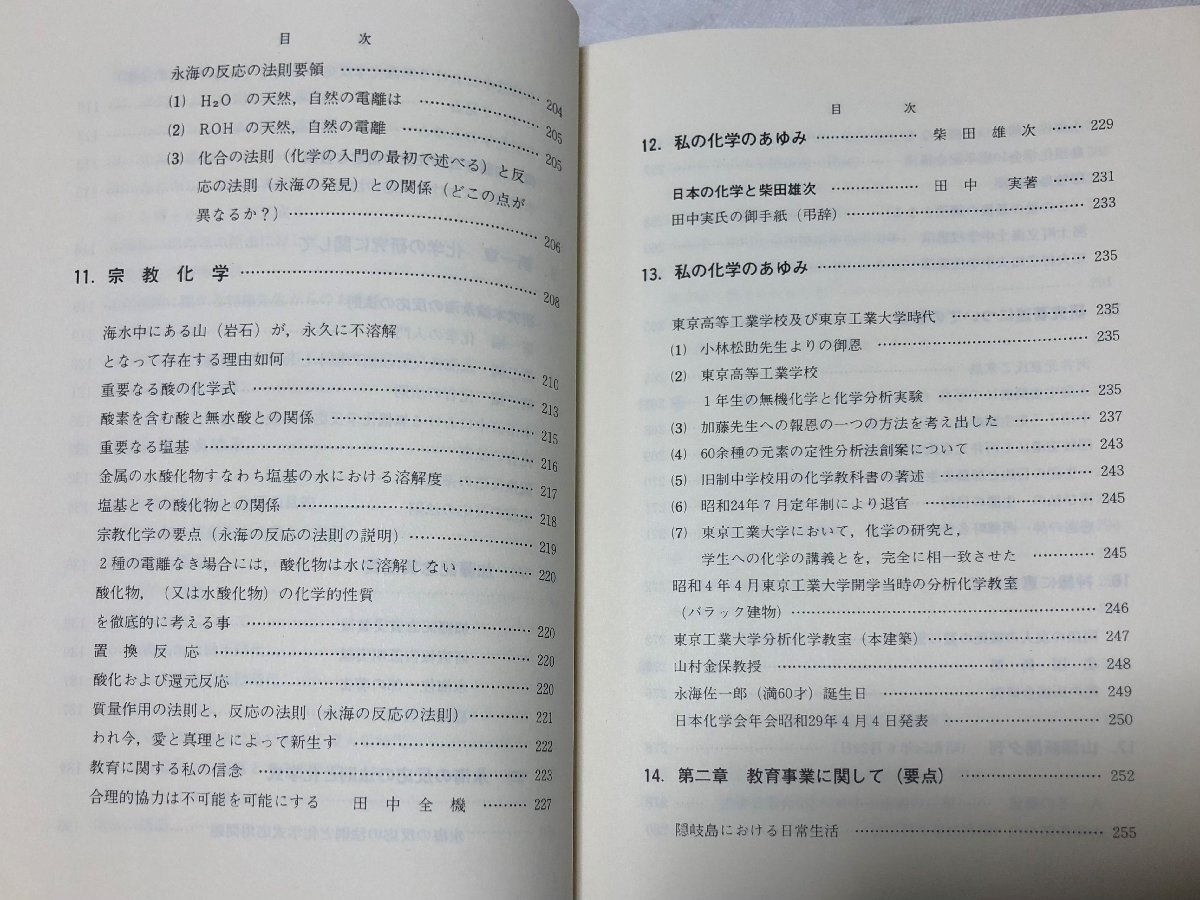 目 次
永海の反応の法則要領 …… 204
(1) H₂O の天然，自然の電離は …… 205
(2) ROH の天然，自然の電離 …… 205
(3) 化合の法則（化学の入門の最初で述べる）と反
応の法則（永海の発見）との関係（どこの点が
異なるか？）…… 206
11. 宗教化学 …… 208
海水中にある山（岩石）が，永久に不溶解
となって存在する理由如何 …… 210
重要なる酸の化学式 …… 213
酸素を含む酸と無水酸との関係 …… 215
重要なる塩基 …… 216
金属の水酸化物すなわち塩基の水における溶解度 …… 217
塩基とその酸化物との関係 …… 218
宗教化学の要点（永海の反応の法則の説明）…… 219
2種の電離なき場合には，酸化物は水に溶解しない …… 220
酸化物，（又は水酸化物）の化学的性質
を徹底的に考える事 …… 220
置換反応 …… 220
酸化および還元反応 …… 220
質量作用の法則と，反応の法則（永海の反応の法則）…… 221
われ今，愛と真理とによって新生す …… 222
教育に関する私の信念 …… 223
合理的協力は不可能を可能にする 田中全機 …… 227
目 次
12. 私の化学のあゆみ …… 柴田雄次 …… 229
日本の化学と柴田雄次 …… 田中 実著 …… 231
田中実氏の御手紙（弔辞）…… 233
13. 私の化学のあゆみ …… 235
東京高等工業学校及び東京工業大学時代 …… 235
(1) 小林松助先生よりの御恩 …… 235
(2) 東京高等工業学校
1年生の無機化学と化学分析実験 …… 235
(3) 加藤先生への報恩の一つの方法を考え出した …… 237
(4) 60余種の元素の定性分析法創案について …… 243
(5) 旧制中学校用の化学教科書の著述 …… 243
(6) 昭和24年7月定年制により退官 …… 245
(7) 東京工業大学において，化学の研究と，
学生への化学の講義とを，完全に相一致させた …… 245
昭和4年4月東京工業大学開学当時の分析化学教室
（バラック建物）…… 246
東京工業大学分析化学教室（本建築）…… 247
山村金保教授 …… 248
永海佐一郎（満60才）誕生日 …… 249
日本化学会年会昭和29年4月4日発表 …… 250
14. 第二章 教育事業に関して（要点）…… 252
隠岐島における日常生活 …… 255